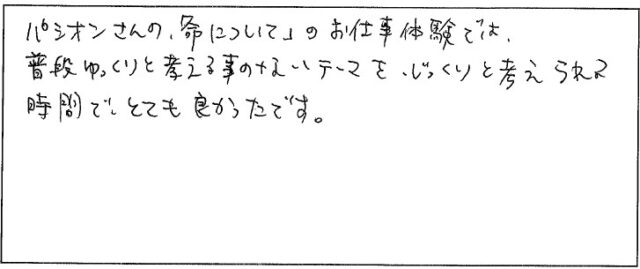 パシオンさんの「命について」のお仕事体験では、
普段ゆっくりと考える事のないテーマを、じっくりと考えられる
時間で、とても良かったです。